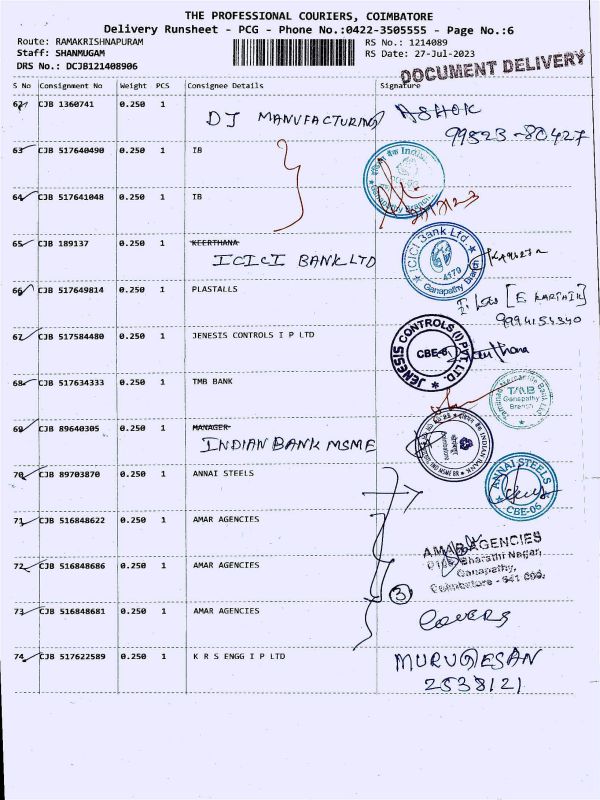 THE PROFESSIONAL COURIERS, COIMBATORE
Delivery Runsheet - PCG - Phone No.:0422-3505555 - Page No.:6
Route: RAMAKRISHNAPURAM RS No.: 1214089
Staff: SHANMUGAM RS Date: 27-Jul-2023
DRS No.: DCJB121408906
DOCUMENT DELIVERY
S No Consignment No Weight PCS Consignee Details Signature
62 CJB 1360741 0.250 1 DJ MANUFACTURING ASHOK
99523-80427
63 CJB 517640490 0.250 1 IB
64 CJB 517641048 0.250 1 IB
Ganapathy Branch
65 CJB 189137 0.250 1 KEERTHANA
ICICI BANK LTD
ICICI Bank Ltd
4370
Ganapathy Branch
66 CJB 517649814 0.250 1 PLASTALLS
[E KARTHIK]
9994154340
67 CJB 517584480 0.250 1 JENESIS CONTROLS I P LTD
JENESIS CONTROLS (I) PVT. LTD.
CBE-6
68 CJB 517634333 0.250 1 TMB BANK
Tamilnad Mercantile Bank Ltd
TMB
Ganapathy
Branch
69 CJB 89640305 0.250 1 MANAGER
INDIAN BANK MSME
INDIAN BANK
70 CJB 89703870 0.250 1 ANNAI STEELS
ANNAI STEELS
CBE-06
71 CJB 516848622 0.250 1 AMAR AGENCIES
72 CJB 516848686 0.250 1 AMAR AGENCIES
AMAR AGENCIES
Bharathi Nagar,
Ganapathy,
Coimbatore - 641 006.
3
73 CJB 516848681 0.250 1 AMAR AGENCIES
COVERS
74 CJB 517622589 0.250 1 K R S ENGG I P LTD MURUGESAN
2538121